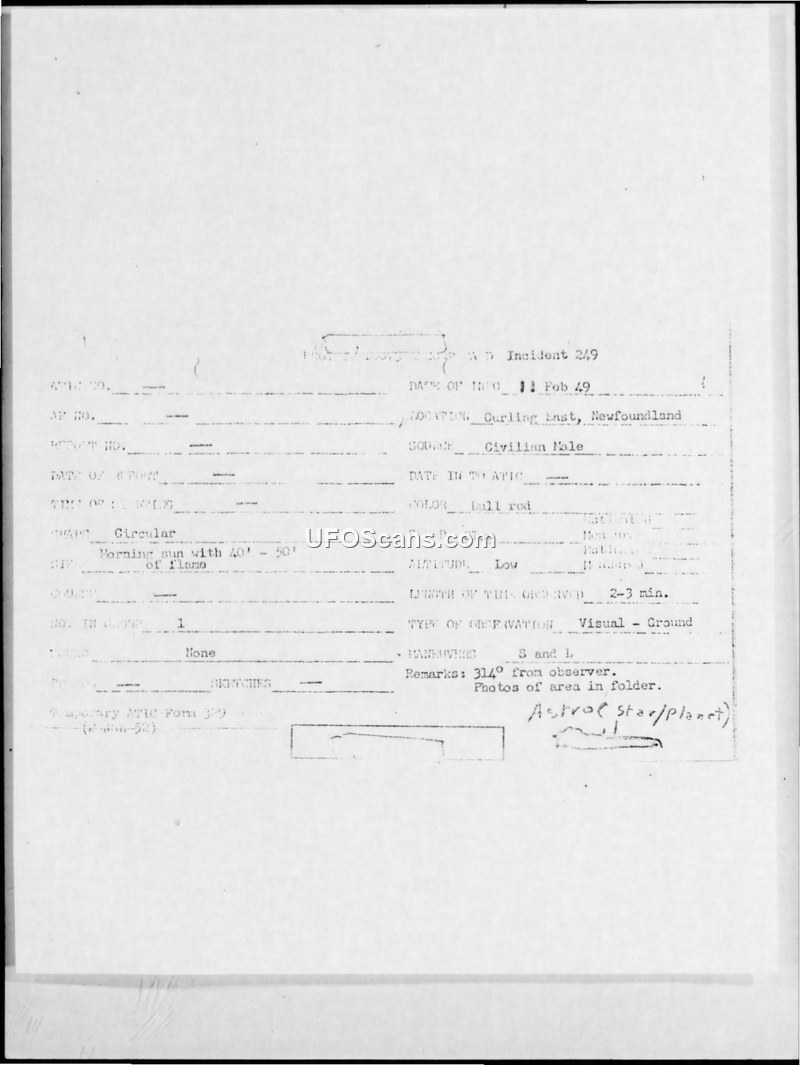 Incident 249
NO. --
DATE OF INFO 11 Feb 49
AF NO. --
LOCATION Curling East, Newfoundland
REPORT NO. --
SOURCE Civilian Male
DATE OF REPORT --
DATE IN TO ATIC --
TIME OF --
COLOR Dull red
SHAPE Circular
UFOScans.com
Morning sun with 40' - 50'
SIZE of flame
ALTITUDE Low
COURSE --
LENGTH OF TIME OBSERVED 2-3 min.
NO. IN GROUP 1
TYPE OF OBSERVATION Visual - Ground
None
MANEUVERS S and L
-- SKETCHES --
Remarks: 314° from observer.
Photos of area in folder.
Temporary ATIC Form 329
Astro( Star/Planet)